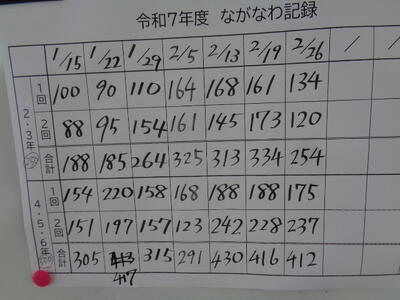 令和7年度 ながなわ記録
1/15 1/22 1/29 2/5 2/13 2/19 2/26 / /
2・3年 250
1回 100 90 110 164 168 161 134
2回 88 95 154 161 145 173 120
合計 188 185 264 325 313 334 254
4・5・6年
1回 154 220 158 168 188 188 175
2回 151 197 157 123 242 228 237
合計 305 315 291 430 416 412
417